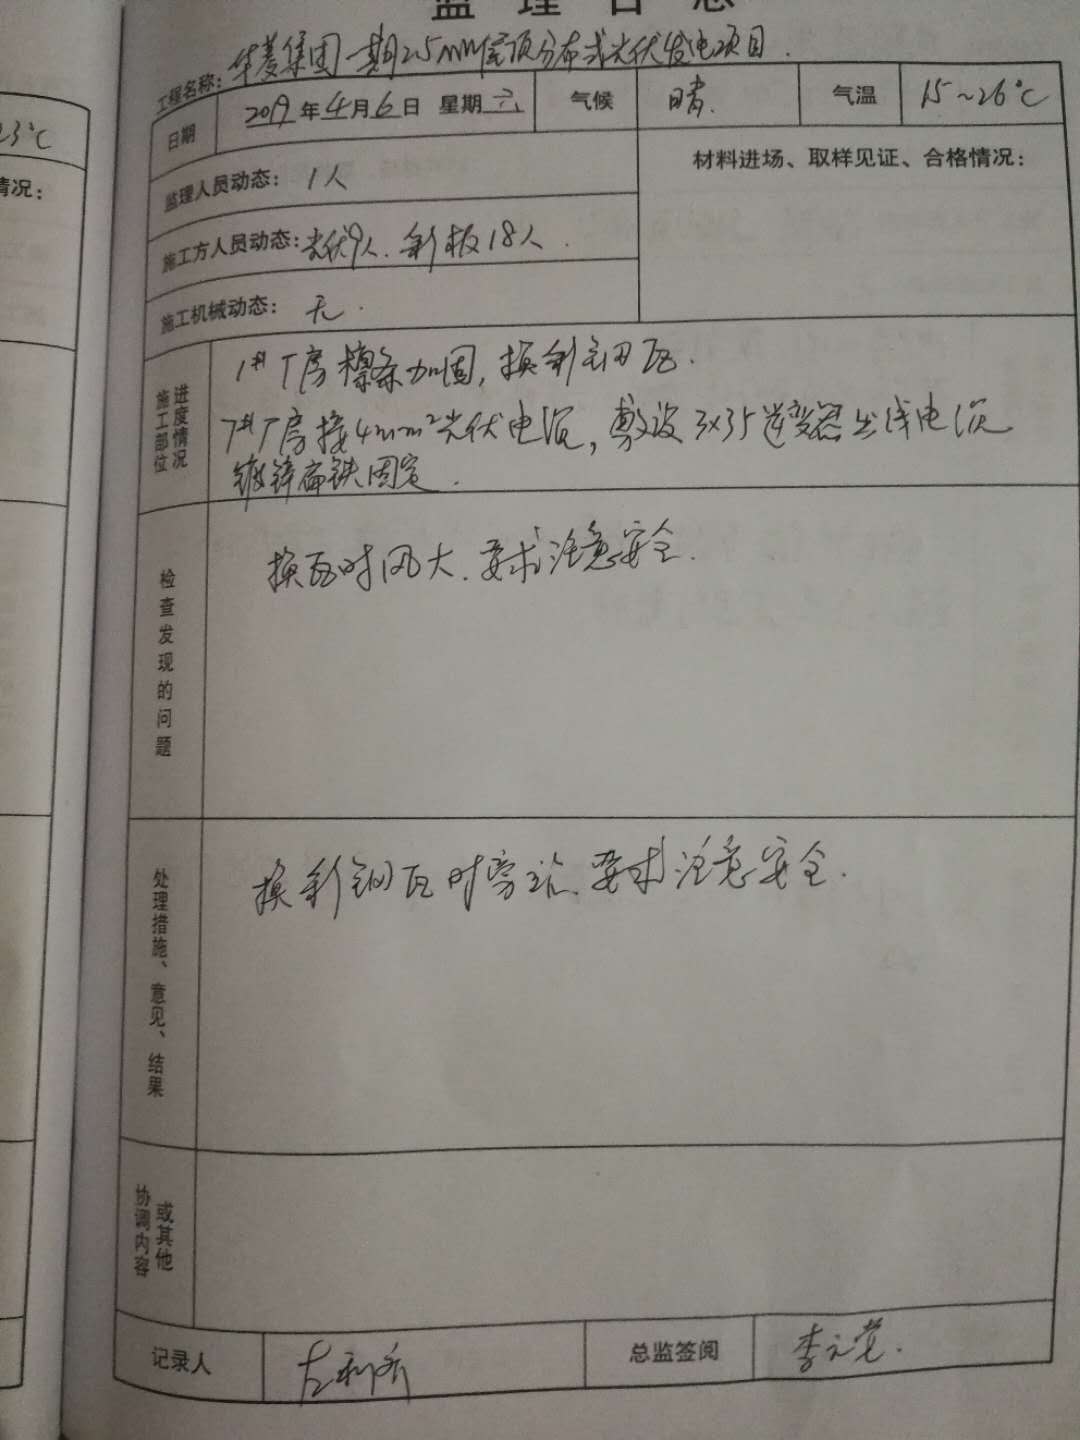 监理日志
工程名称：华菱集团一期25MW屋顶分布式光伏发电项目.
日期 2019年4月6日 星期六 气候 晴. 气温 15~26℃
监理人员动态：1人
材料进场、取样见证、合格情况：
施工方人员动态：光伏9人. 彩板18人.
施工机械动态：无.
进度情况
施工部位
1#厂房檩条加固, 换彩钢瓦.
7#厂房接4mm²光伏电缆, 敷设3×35逆变器出线电缆
镀锌扁铁固定.
检查发现的问题
换瓦时风大. 要求注意安全.
处理措施、意见、结果
换彩钢瓦时旁站. 要求注意安全.
或其他
协调内容
记录人
总监签阅
23℃
情况：